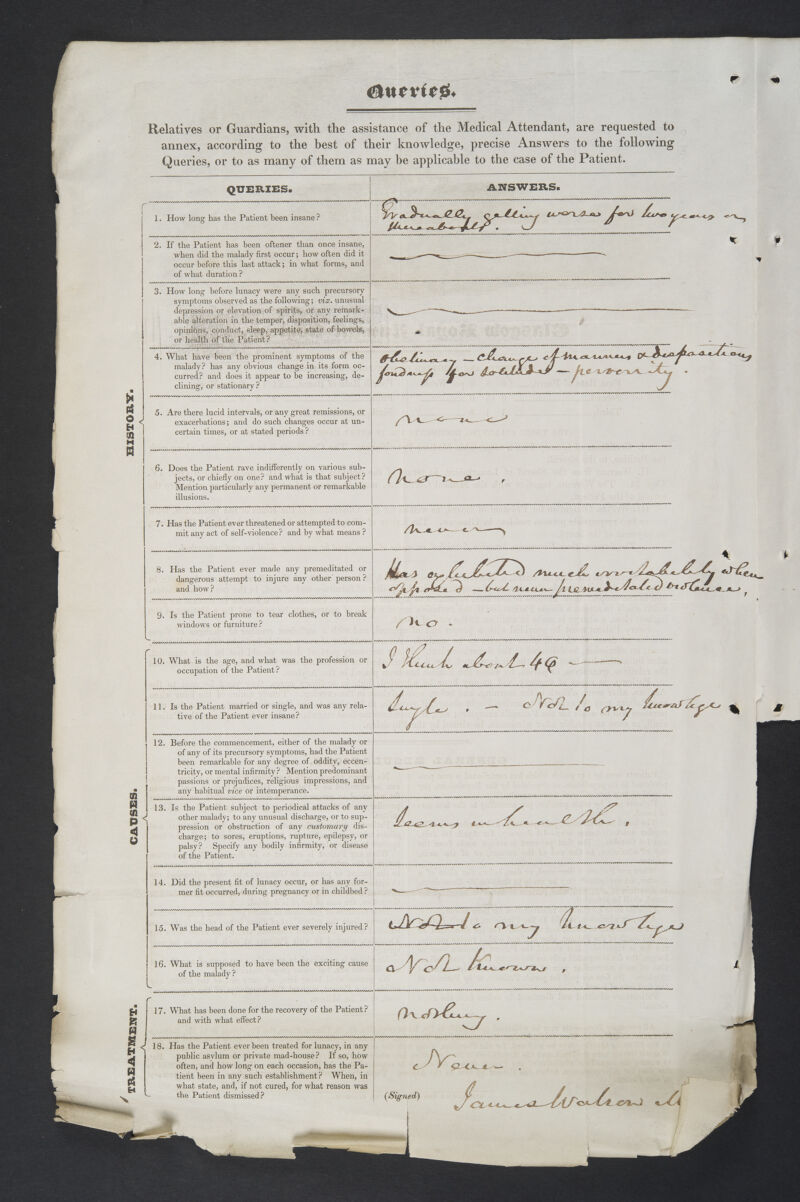 Queries.
Relatives or Guardians, with the assistance of the Medical Attendant, are requested to
annex, according to the best of their knowledge, precise Answers to the following
Queries, or to as many of them as may be applicable to the case of the Patient.
QUERIES.
ANSWERS.
HISTORY.
1. How long has the Patient been insane?
Gradually getting worse for two years or
thereabouts.
2. If the Patient has been oftener than once insane,
when did the malady first occur; how often did it
occur before this last attack; in what forms, and
of what duration?
3. How long before lunacy were any such precursory
symptoms observed as the following; viz. unusual
depression or elevation of spirits, or any remark-
able alteration in the temper, disposition, feelings,
opinions, conduct, sleep, appetite, state of bowels,
or health of the Patient?
4. What have been the prominent symptoms of the
malady? has any obvious change in its form oc-
curred? and does it appear to be increasing, de-
clining, or stationary?
Obstinacy – change of manners & dispositions
fondness for solitude – perversity.
5. Are there lucid intervals, or any great remissions, or
exacerbations; and do such changes occur at un-
certain times, or at stated periods?
none
6. Does the Patient rave indifferently on various sub-
jects, or chiefly on one? and what is that subject?
Mention particularly any permanent or remarkable
illusions.
None.
7. Has the Patient ever threatened or attempted to com-
mit any act of self-violence? and by what means?
never
8. Has the Patient ever made any premeditated or
dangerous attempt to injure any other person?
and how?
Has exhibited much irritability when
opposed – but never premeditated violence,
9. Is the Patient prone to tear clothes, or to break
windows or furniture?
no.
CAUSES.
10. What is the age, and what was the profession or
occupation of the Patient?
I think about
11. Is the Patient married or single, and was any rela-
tive of the Patient ever insane?
Single. – Not to my knowlege
12. Before the commencement, either of the malady or
of any of its precursory symptoms, had the Patient
been remarkable for any degree of oddity, eccen-
tricity, or mental infirmity? Mention predominant
passions or prejudices, religious impressions, and
any habitual vice or intemperance.
13. Is the Patient subject to periodical attacks of any
other malady; to any unusual discharge, or to sup-
pression or obstruction of any customary dis-
charge; to sores, eruptions, rupture, epilepsy, or
palsy? Specify any bodily infirmity, or disease
of the Patient.
Seems in health.
14. Did the present fit of lunacy occur, or has any for-
mer fit occurred, during pregnancy or in childbed?
15. Was the head of the Patient ever severely injured?
Not to my knowlege
16. What is supposed to have been the exciting cause
of the malady?
Not Known.
TREATMENT.
17. What has been done for the recovery of the Patient?
and with what effect?
Nothing.
18. Has the Patient ever been treated for lunacy, in any
public asylum or private mad-house? If so, how
often, and how long on each occasion, has the Pa-
tient been in any such establishment? When, in
what state, and, if not cured, for what reason was
the Patient dismissed?
Never.
(Signed)
James Watson M